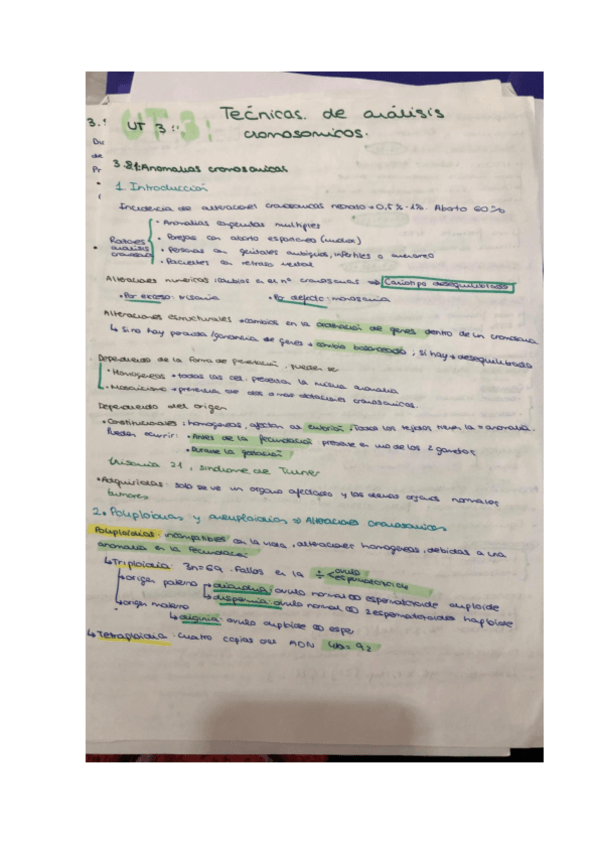 Tećnicas. de análisis
UT 3: cromosomicos.
3.1: Anomalias cromosomicas
1. Introducción
Incidencia de alteraciones cromosomicas neonato → 0,5% - 1%. Aborto 60%
Razones análisis cromosómico
• Anomalias congenitas multiples
• Parejas con aborto espontaneo (multiples)
• Personas con genitales ambiguos, infertiles o amenorrea
• Pacientes con retraso mental
Alteraciones numericas: cambios en el nº cromosomas ⇒ Cariotipo desequilibrado
• Por exceso: trisomia • Por defecto: monosomia
Alteraciones estructurales → cambios en la ordenación de genes dentro de un cromosoma
↳ Si no hay perdida/ganancia de genes → cambio balanceado, si hay → desequilibrado
Dependiendo de la forma de presentación, pueden ser
• Homogeneas → todas las cel. presentan la misma anomalia
• Mosaicismo → presencia de dos o mas dotaciones cromosomicas.
Dependiendo del origen
• Constitucionales: homogeneas, afectan al embrión. Todos los tejidos tienen la = anomalia.
Pueden ocurrir: • Antes de la fecundación presente en uno de los 2 gametos
• Durante la gestación
trisomia 21, sindrome de Turner
• Adquiridas: solo se ve un organo afectado y los demas organos normales
tumores
2. Poliploidias y aneuploidias ⇒ Alteraciones cromosomicas
Poliploidias: incompatibles con la vida, alteraciones homogeneas, debidas a una
anomalia en la fecundación
↳ Triploidia: 3n=69. Fallos en la ÷ < ovulo espermatozoide
↳ origen paterno diandria: ovulo normal espermatozoide diploide
dispermia: ovulo normal 2 espermatozoides haploide
↳ origen materno
↳ diginia: ovulo diploide esper
↳ Tetraploidia: cuatro copias del ADN 4n= 92